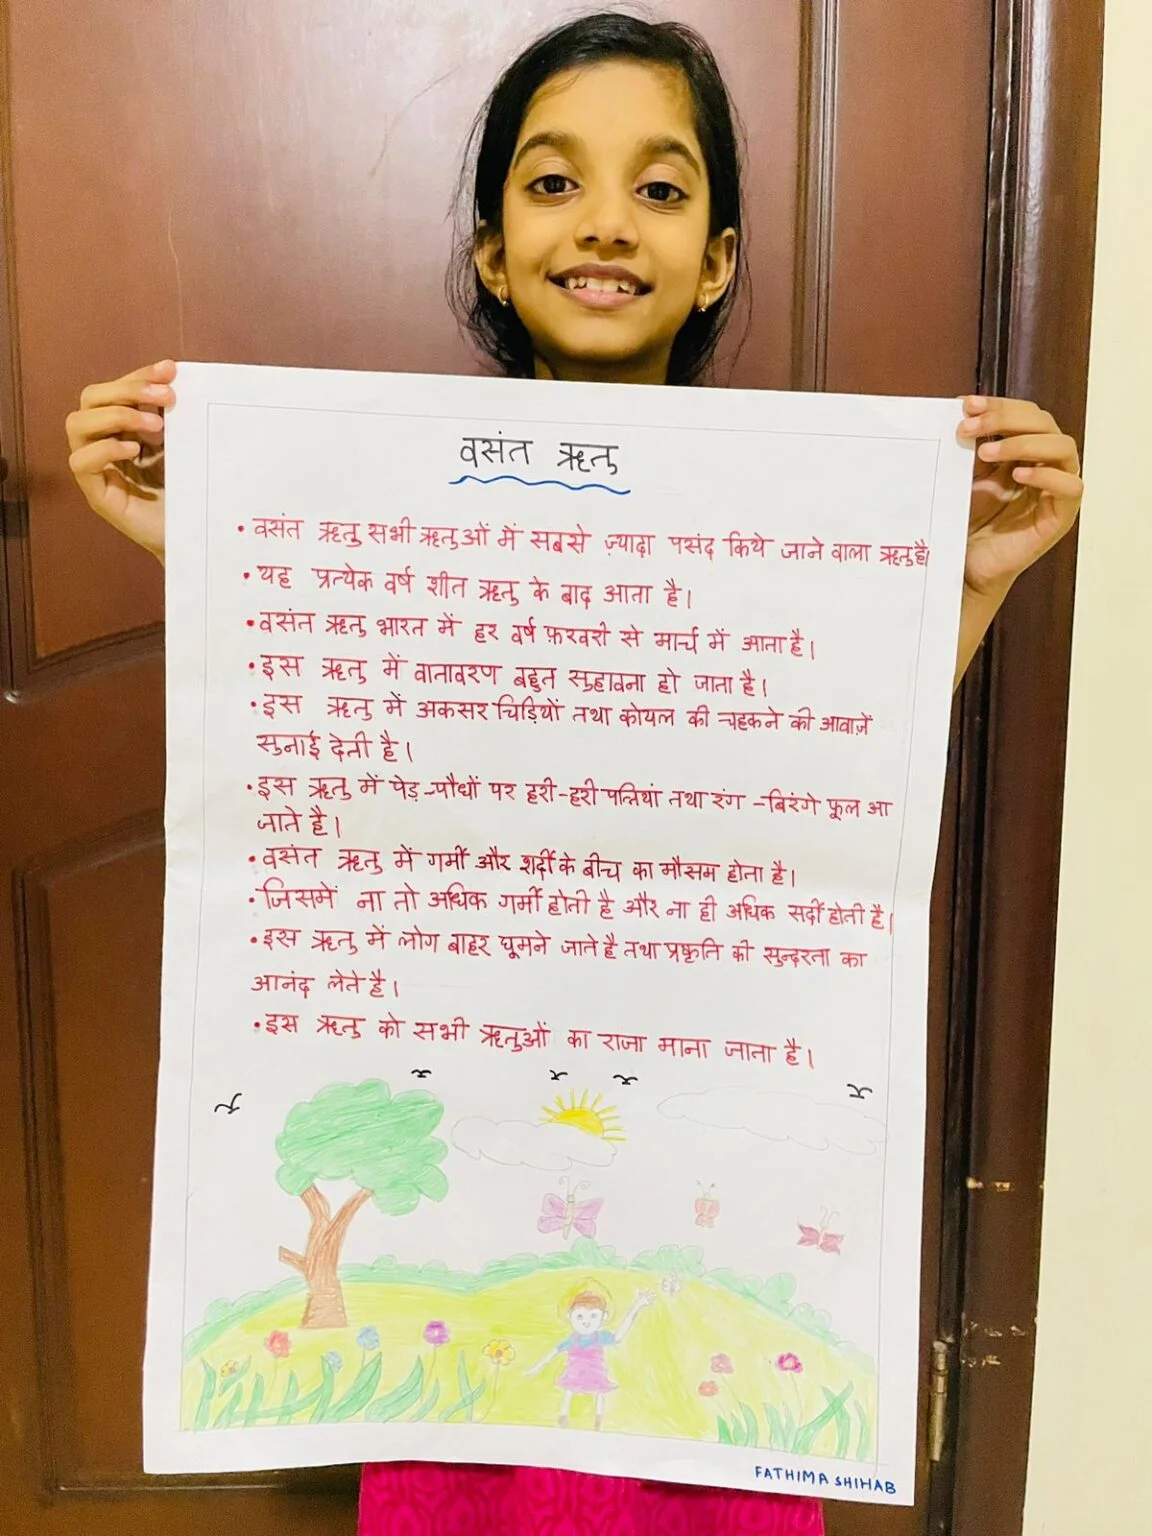 वसंत ऋतु
• वसंत ऋतु सभी ऋतुओं में सबसे ज़्यादा पसंद किये जाने वाला ऋतु है।
• यह प्रत्येक वर्ष शीत ऋतु के बाद आता है।
• वसंत ऋतु भारत में हर वर्ष फ़रवरी से मार्च में आता है।
• इस ऋतु में वातावरण बहुत सुहावना हो जाता है।
• इस ऋतु में अकसर चिड़ियों तथा कोयल की चहकने की आवाज़ें
सुनाई देती है।
• इस ऋतु में पेड़-पौधों पर हरी-हरी पत्तियां तथा रंग-बिरंगे फूल आ
जाते है।
• वसंत ऋतु में गर्मी और शर्दी के बीच का मौसम होता है।
• जिसमें ना तो अधिक गर्मी होती है और ना ही अधिक सर्दी होती है।
• इस ऋतु में लोग बाहर घूमने जाते है तथा प्रकृति की सुन्दरता का
आनंद लेते है।
• इस ऋतु को सभी ऋतुओं का राजा माना जाता है।
FATHIMA SHIHAB